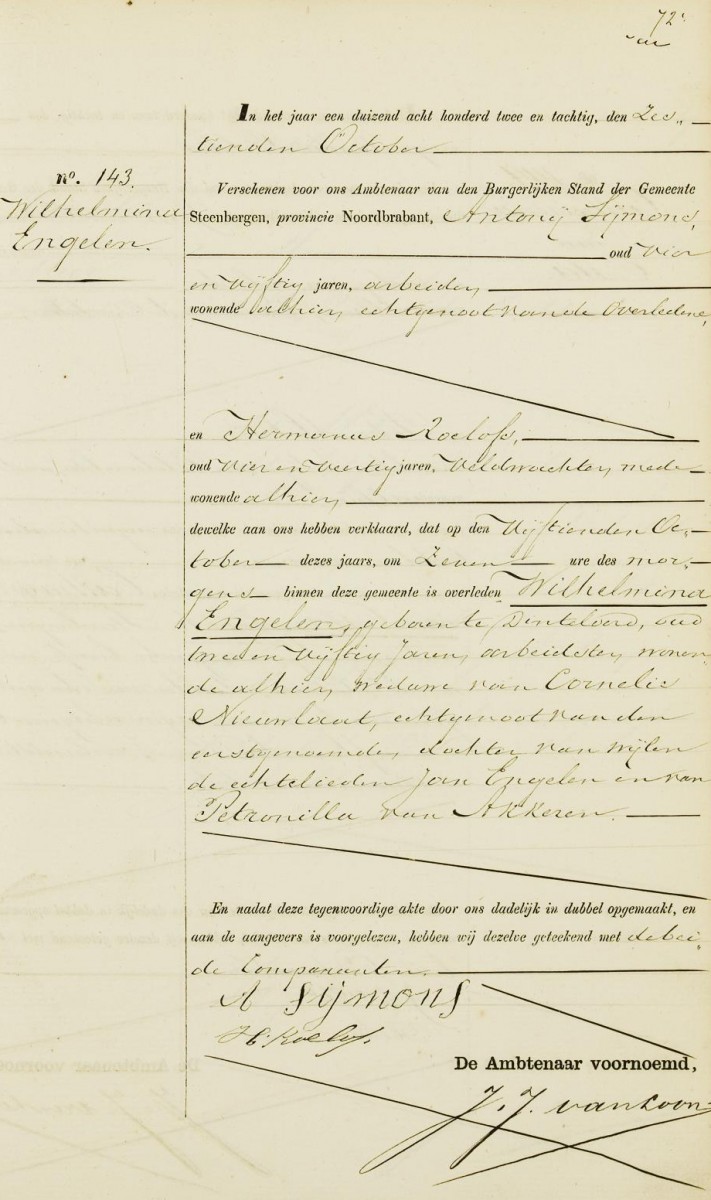 72
In het jaar een duizend acht honderd twee en tachtig, den Zes-
tienden October
no. 143.
Wilhelmina
Engelen.
Verschenen voor ons Ambtenaar van den Burgerlijken Stand der Gemeente
Steenbergen, provincie Noordbrabant, Antonij Sijmons,
oud vier
en vijftig jaren, arbeider,
wonende alhier, echtgenoot van de overledene,
en Hermanus Roelofs,
oud vier en veertig jaren, veldwachter, mede
wonende alhier,
dewelke aan ons hebben verklaard, dat op den vijftienden Oc-
tober dezes jaars, om zeven ure des mor-
gens binnen deze gemeente is overleden Wilhelmina
Engelen, geboren te Dinteloord, oud
twee en vijftig jaren, arbeidster, wonen-
de alhier, weduwe van Cornelis
Nieuwlaat, echtgenoot van den
eerstgenoemde, dochter van wijlen
de echtelieden Jan Engelen en van
Petronilla van Akkeren.
En nadat deze tegenwoordige akte door ons dadelijk in dubbel opgemaakt, en
aan de aangevers is voorgelezen, hebben wij dezelve geteekend met de bei-
de Comparanten.
A Sijmons
H. Roelofs.
De Ambtenaar voornoemd,
J. J. van Loon